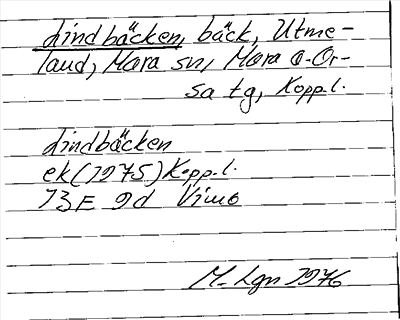 Lindbäcken, bäck, Utme-
land, Mora sn, Mora o. Or-
sa tg, Kopp.l.
Lindbäcken
ek (1975) Kopp.l.
13E 9d Vimo
M. Lgn 1976